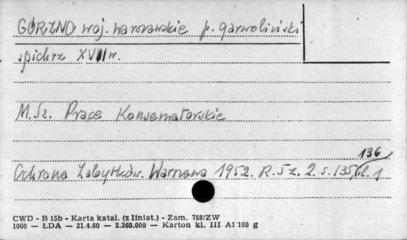 GÓRZNO woj. warszawskie p. garwoliński
spichrz XVIII w.
M. Sz. Prace Konserwatorskie
136
Ochrona Zabytków. Warszawa 1952. R. 5 z. 2. s. 135, il. 1
CWD - B 15b - Karta katal. (z liniat.) - Zam. 788/ZW
1000 — ŁDA — 21.4.60 — 2.360.000 — Karton kl. III A1 160 g